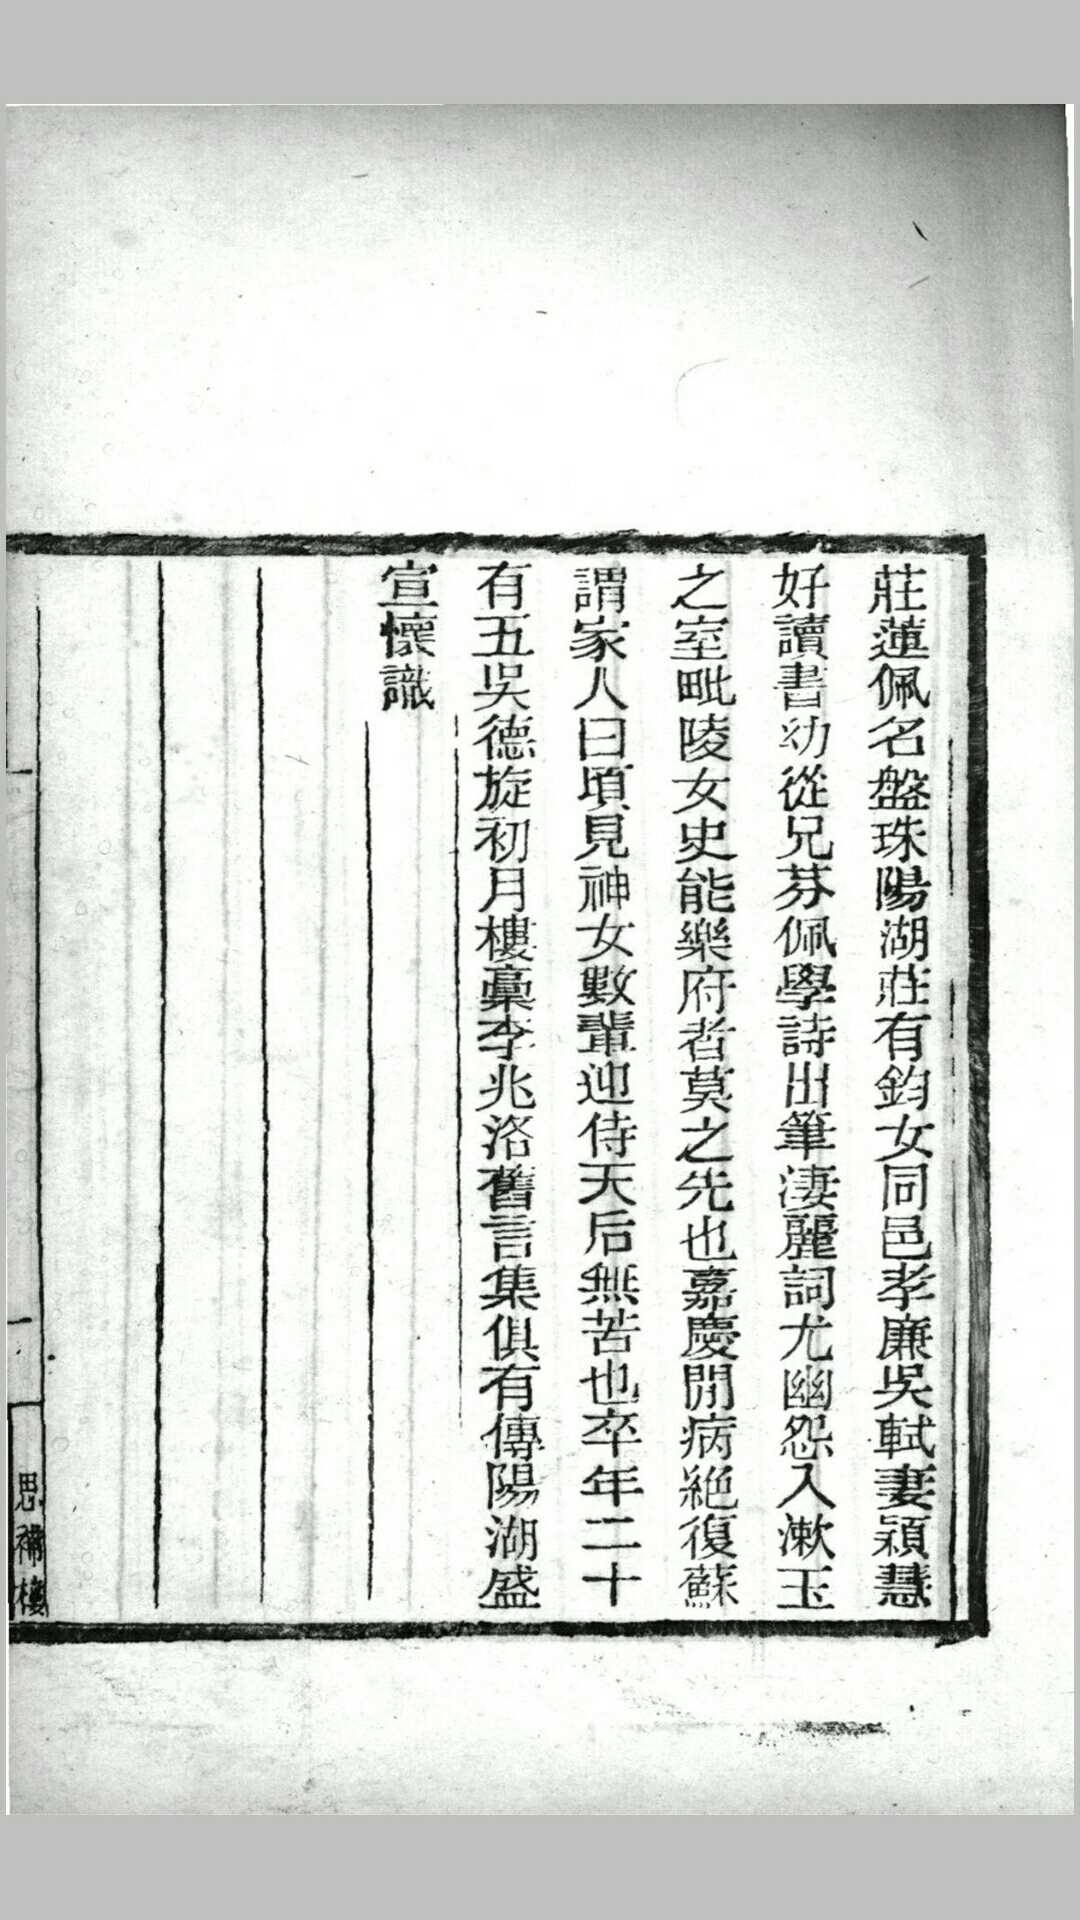 莊蓮佩名盤珠陽湖莊有鈞女同邑孝廉吳軾妻潁慧
好讀書幼從兄芬佩學詩出筆淒麗詞尤幽怨入漱玉
之室毗陵女史能樂府者莫之先也嘉慶閒病絕復蘇
謂家人曰頃見神女數輩迎侍天后無苦也卒年二十
有五吳德旋初月樓藁李兆洛舊言集俱有傳陽湖盛
宣懷識
一
思補樓